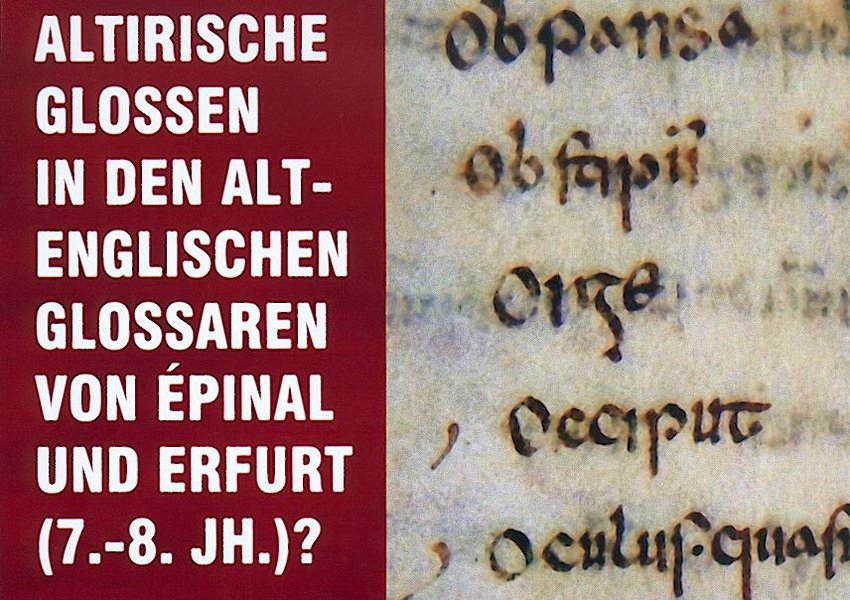 ALTIRISCHE
GLOSSEN
IN DEN ALT-
ENGLISCHEN
GLOSSAREN
VON ÉPINAL
UND ERFURT
(7.-8. JH.)?
Obpansa
Orge
Occiput
Oculus·quasi